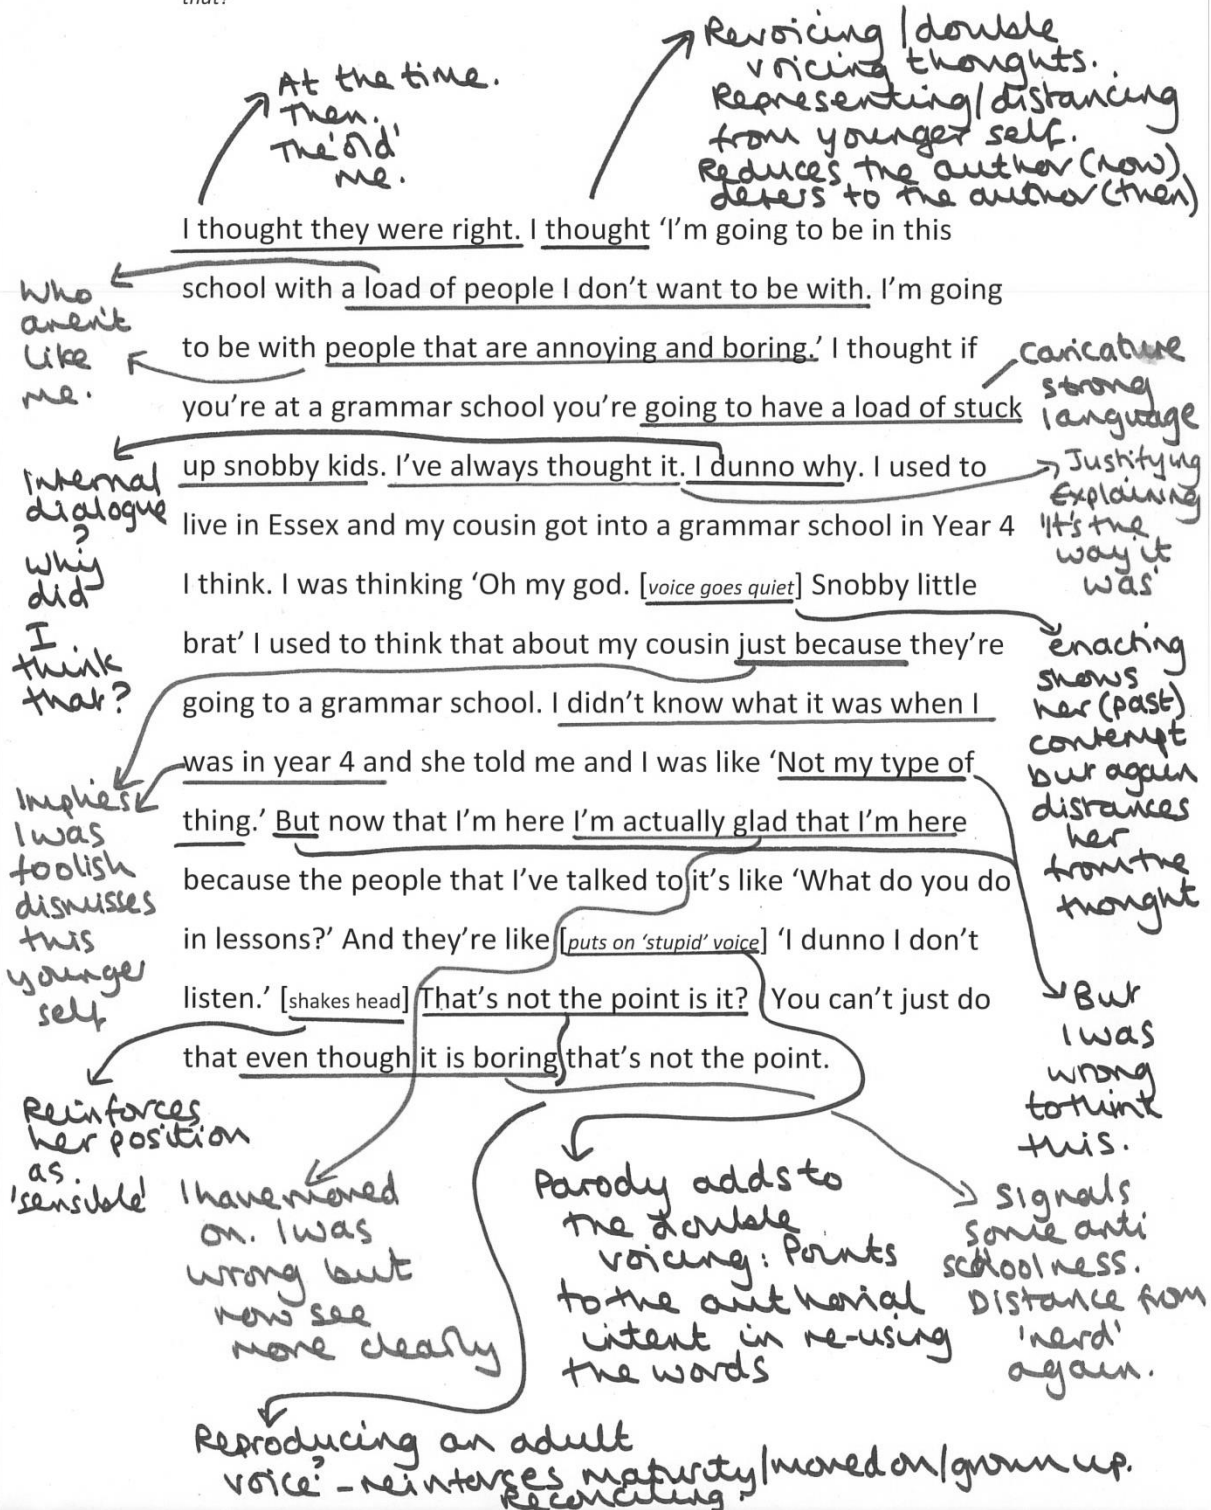 that?
Revoicing/double
voicing thoughts.
Representing/distancing
from younger self.
Reduces the author (now),
defers to the author (then)
At the time.
Then.
The 'old'
me.
I thought they were right. I thought ‘I’m going to be in this
school with a load of people I don’t want to be with. I’m going
to be with people that are annoying and boring.’ I thought if
you’re at a grammar school you’re going to have a load of stuck
up snobby kids. I’ve always thought it. I dunno why. I used to
live in Essex and my cousin got into a grammar school in Year 4
I think. I was thinking ‘Oh my god. [voice goes quiet] Snobby little
brat’ I used to think that about my cousin just because they’re
going to a grammar school. I didn’t know what it was when I
was in year 4 and she told me and I was like ‘Not my type of
thing.’ But now that I’m here I’m actually glad that I’m here
because the people that I’ve talked to it’s like ‘What do you do
in lessons?’ And they’re like [puts on ‘stupid’ voice] ‘I dunno I don’t
listen.’ [shakes head] That’s not the point is it? You can’t just do
that even though it is boring that’s not the point.
Who
aren't
like
me.
internal
dialogue
?
Why
did
I
think
that?
Implies
I was
foolish
dismisses
this
younger
self
Reinforces
her position
as.
'sensible'
caricature
strong
language
Justifying
Explaining
'It's the
way it
was'
enacting
shows
her (past)
contempt
but again
distances
her
from the
thought
But
I was
wrong
to think
this.
I have moved
on. I was
wrong but
now see
more clearly
Parody adds to
the double
voicing: Points
to the authorial
intent in re-using
the words
Signals
some anti
schoolness.
Distance from
'nerd'
again.
Reproducing an adult
voice? - reinforces maturity/moved on/grown up.
Reconciling?